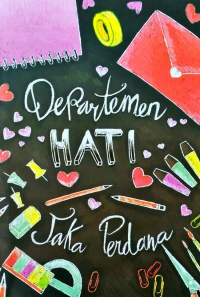 Departemen
HATI
Jata Perdana